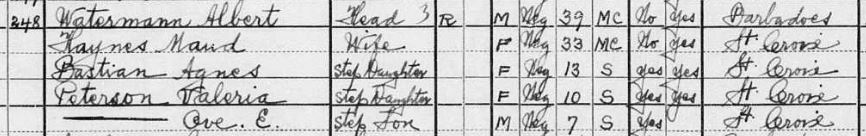 248 Watermann Albert Head 3 R M Neg 39 MC No Yes Barbadoes
Haynes Maud Wife F Neg 33 MC No Yes St. Croix
Bastian Agnes Step Daughter F Neg 13 S Yes Yes St. Croix
Peterson Valeria Step Daughter F Neg 10 S Yes Yes St. Croix
Ove. E. Step Son M Neg 7 S Yes St. Croix